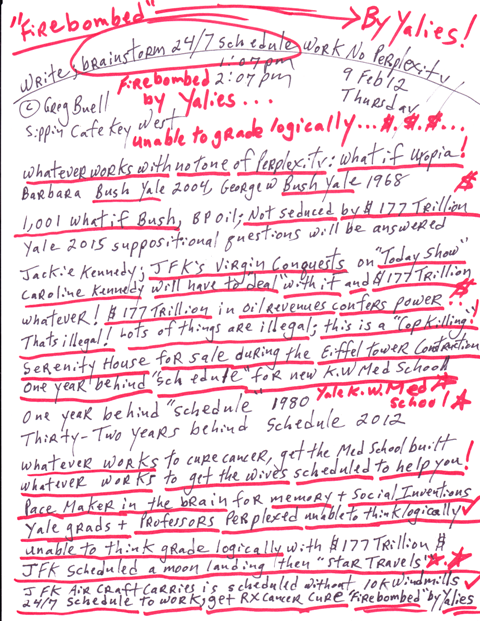 "Firebombed" By Yalies!
Write, brainstorm 24/7 Schedule Work No Perplexity
1:07pm
Firebombed 2:07pm
9 Feb 12
by Yalies...
Thursday
© Greg Buell
Sippin Cafe Key West
unable to grade logically...$.$.$...
whatever works with no tone of Perplexity: what if Utopia!
Barbara Bush Yale 2004, George W Bush Yale 1968 $
1,001 what if Bush, BP Oil; Not seduced by $177 Trillion
Yale 2015 suppositional questions will be answered
Jackie Kennedy; JFK's Virgin Conquests on "Today Show"
Caroline Kennedy will have to "deal" with it and $177 Trillion
whatever! $177 Trillion in oil revenues confers power...!
Thats illegal! Lots of things are illegal; this is a "Cop Killing"!
Serenity House for sale during the Eiffel Tower Construction
One year behind "schedule" for new K.W Med School
Yale K.W. Med
One year behind "schedule" 1980 School
Thirty-Two years behind Schedule 2012
whatever works to cure cancer, get the Med School built
whatever works to get the wives scheduled to help you!
Pace Maker in the brain for memory + Social Inventions
Yale grads + Professors Perplexed unable to think logically
unable to think grade logically with $177 Trillion $
JFK scheduled a moon landing then "Star Travels"
JFK Air Craft Carries is scheduled without 10K Windmills
24/7 schedule to work, get Rx Cancer Cure "Firebombed" by Yalies